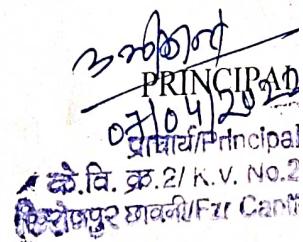 PRINCIPAL
07/04/2022
प्राचार्य/Principal
के.वि. क्र.2/K.V. No.2
फिरोजपुर छावनी/Fzr Cantt